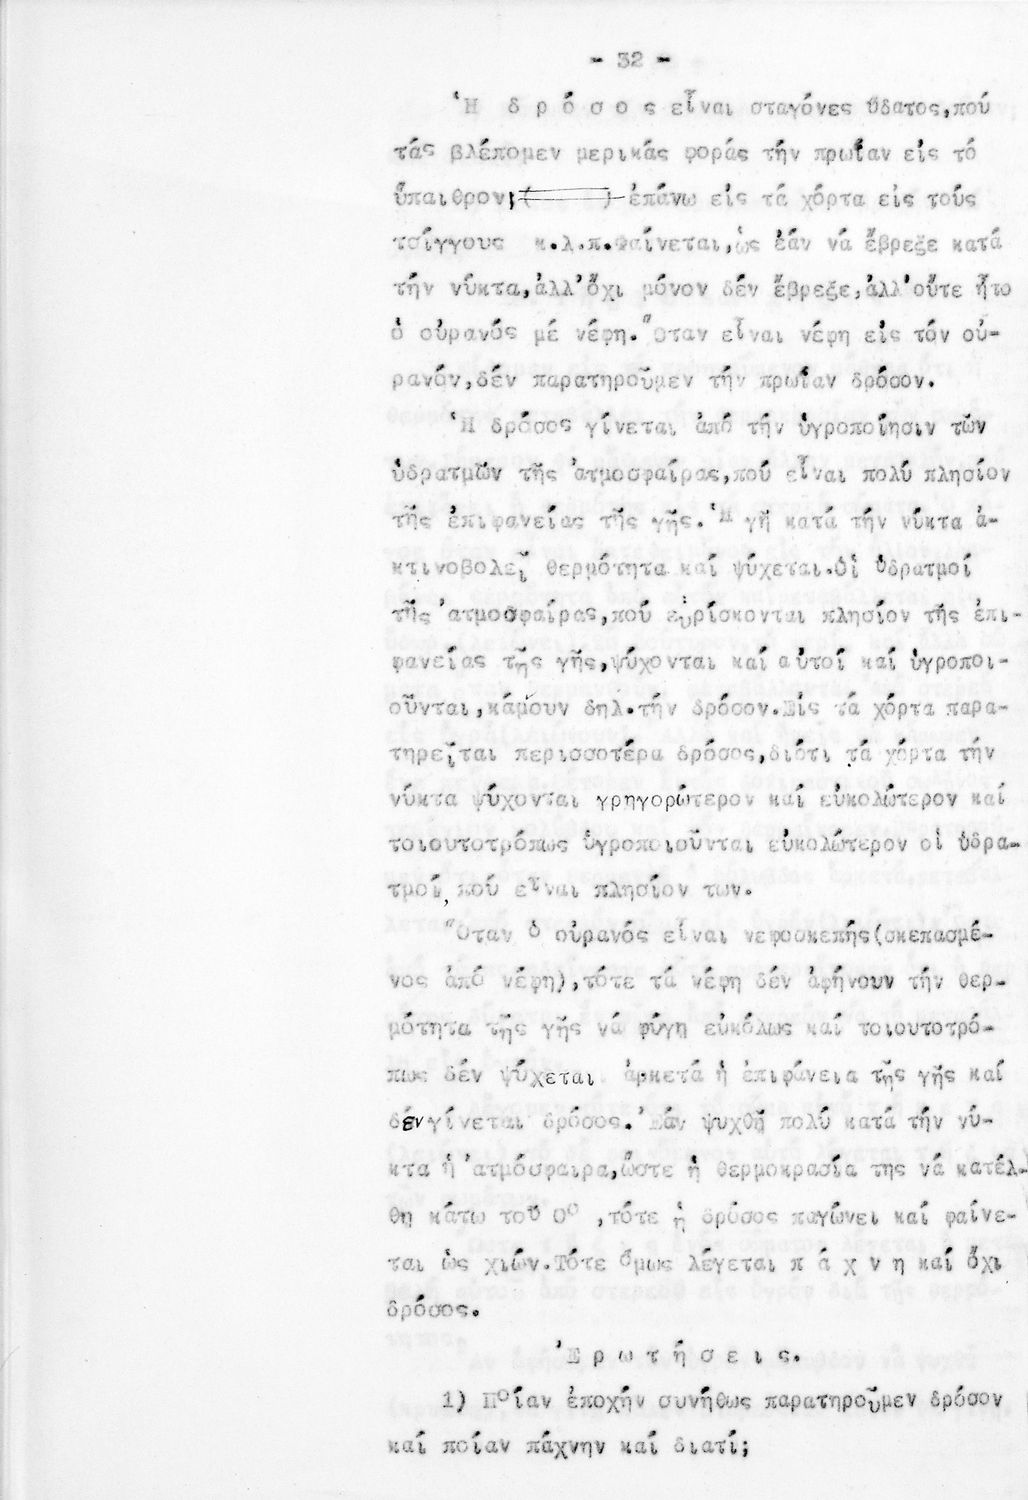 - 32 -
Ἡ δ ρ ό σ ο ς εἶναι σταγόνες ὕδατος,πού
τάς βλέπομεν μερικάς φοράς τήν πρωΐαν εἰς τό
ὕπαιθρον; ( ) ἐπάνω εἰς τά χόρτα εἰς τούς
τσίγγους κ.λ.π.Φαίνεται,ὡς ἐάν νά ἔβρεξε κατά
τήν νύκτα,ἀλλ'ὄχι μόνον δέν ἔβρεξε,ἀλλ'οὔτε ἦτο
ὁ οὐρανός μέ νέφη.Ὅταν εἶναι νέφη εἰς τόν οὐ-
ρανόν,δέν παρατηροῦμεν τήν πρωΐαν δρόσον.
Ἡ δρόσος γίνεται ἀπό τήν ὑγροποίησιν τῶν
ὑδρατμῶν τῆς ἀτμοσφαίρας,πού εἶναι πολύ πλησίον
τῆς ἐπιφανείας τῆς γῆς.Ἡ γῆ κατά τήν νύκτα ἀ-
κτινοβολεῖ θερμότητα καί ψύχεται.Οἱ ὑδρατμοί
τῆς ἀτμοσφαίρας,πού εὑρίσκονται πλησίον τῆς ἐπι-
φανείας τῆς γῆς,ψύχονται καί αὐτοί καί ὑγροποι-
οῦνται,κάμουν δηλ.τήν δρόσον.Εἰς τά χόρτα παρα-
τηρεῖται περισσοτέρα δρόσος,διότι τά χόρτα τήν
νύκτα ψύχονται γρηγορώτερον καί εὐκολώτερον καί
τοιουτοτρόπως ὑγροποιοῦνται εὐκολώτερον οἱ ὑδρα-
τμοί,πού εἶναι πλησίον των.
Ὅταν ὁ οὐρανός εἶναι νεφοσκεπής(σκεπασμέ-
νος ἀπό νέφη),τότε τά νέφη δέν ἀφήνουν τήν θερ-
μότητα τῆς γῆς νά φύγη εὐκόλως καί τοιουτοτρό-
πως δέν ψύχεται ἀρκετά ἡ ἐπιφάνεια τῆς γῆς καί
δέν γίνεται δρόσος.Ἐάν ψυχθῆ πολύ κατά τήν νύ-
κτα ἡ ἀτμόσφαιρα,ὥστε ἡ θερμοκρασία της νά κατέλ-
θη κάτω τοῦ 0° ,τότε ἡ δρόσος παγώνει καί φαίνε-
ται ὡς χιών.Τότε ὅμως λέγεται π ά χ ν η καί ὄχι
δρόσος.
Ἐ ρ ω τ ή σ ε ι ς.
1) Ποίαν ἐποχήν συνήθως παρατηροῦμεν δρόσον
καί ποίαν πάχνην καί διατί;